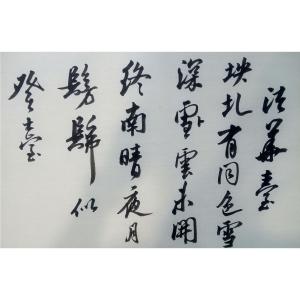 法華臺
坱圠有同色雪
深雪雲未開
終南晴夜月
髣髴似
登臺